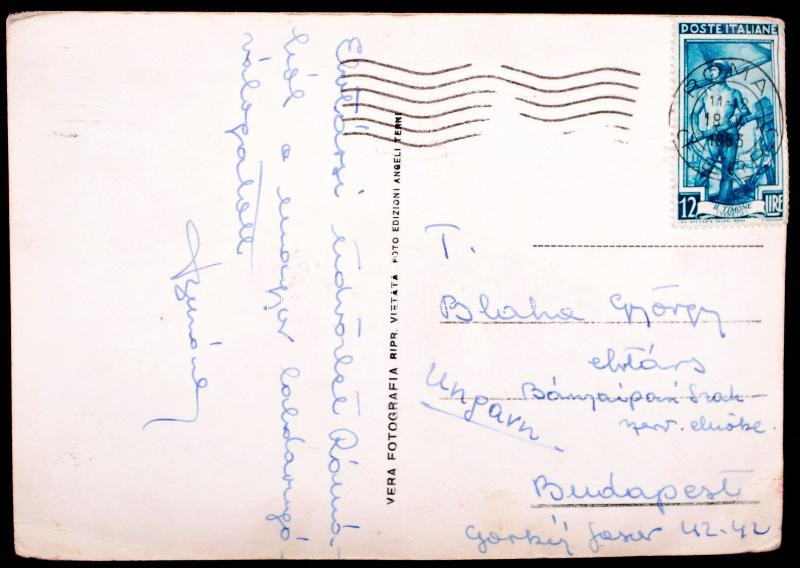 Elvtársi üdvözlet Rómá-
ból a magyar labdarugó
válogatott
VERA FOTOGRAFIA RIPR. VIETATA FOTO EDIZIONI ANGELI TERNI
POSTE ITALIANE
ROMA
11-12
18.
1953
IL TIMONE
12 LIRE
T.
Blaha György
elvtárs
Ungarn
Bányaipari Szak-
szerv. elnöke.
Budapest
Gorkij fasor 42-42